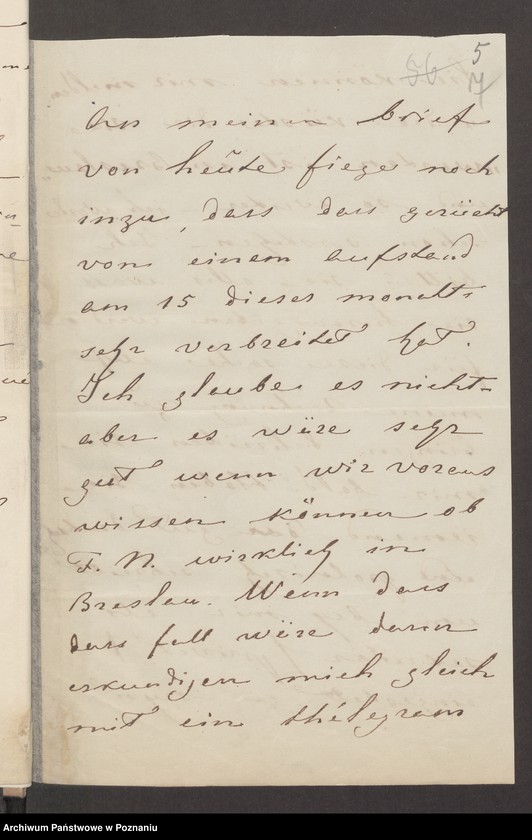 5
56
7
An meinen brief
von heute fiege noch
inzu, dass dass gerücht
von einem aufstand
am 15 dieses monats
sehr verbreitet hat.
Ich glaube es nicht-
aber es wäre sehr
gut wenn wir voraus
wissen können ob
F. N. wirklich in
Breslau. Wenn dass
dass fall wäre dann
erkundigen mich gleich
mit ein thélegram
Archiwum Państwowe w Poznaniu